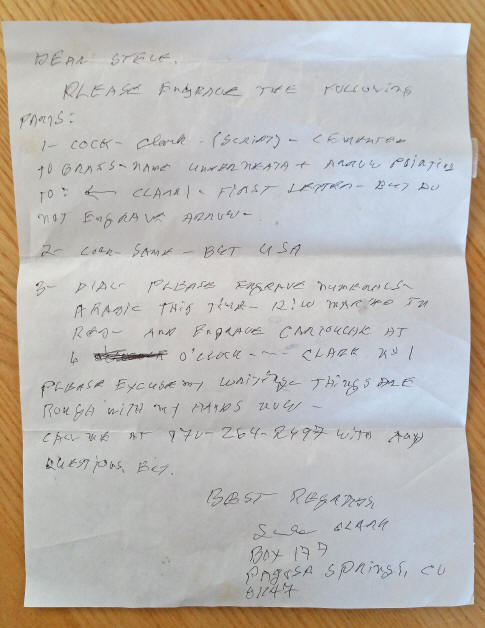 DEAR STEVE.
PLEASE ENGRAVE THE FOLLOWING
PARTS:
1- COCK - Clark - (SCRIPT) - CEMENTED
TO BRASS - NAME UNDERNEATH + ARROW POINTING
TO: ← CLARK - FIRST LETTER - BUT DO
NOT ENGRAVE ARROW -
2- COCK - SAME - BUT USA
3- DIAL - PLEASE ENGRAVE NUMERALS -
ARABIC THIS TIME - MARKED IN
RED - AND ENGRAVE CARTOUCHE AT
6 O'CLOCK - CLARK
PLEASE EXCUSE MY WRITING - THINGS ARE
ROUGH WITH MY HANDS NOW -
CALL ME AT 970-264-2497 WITH ANY
QUESTIONS, ETC.
BEST REGARDS
CLARK
BOX
PAGOSA SPRINGS, CO
81147